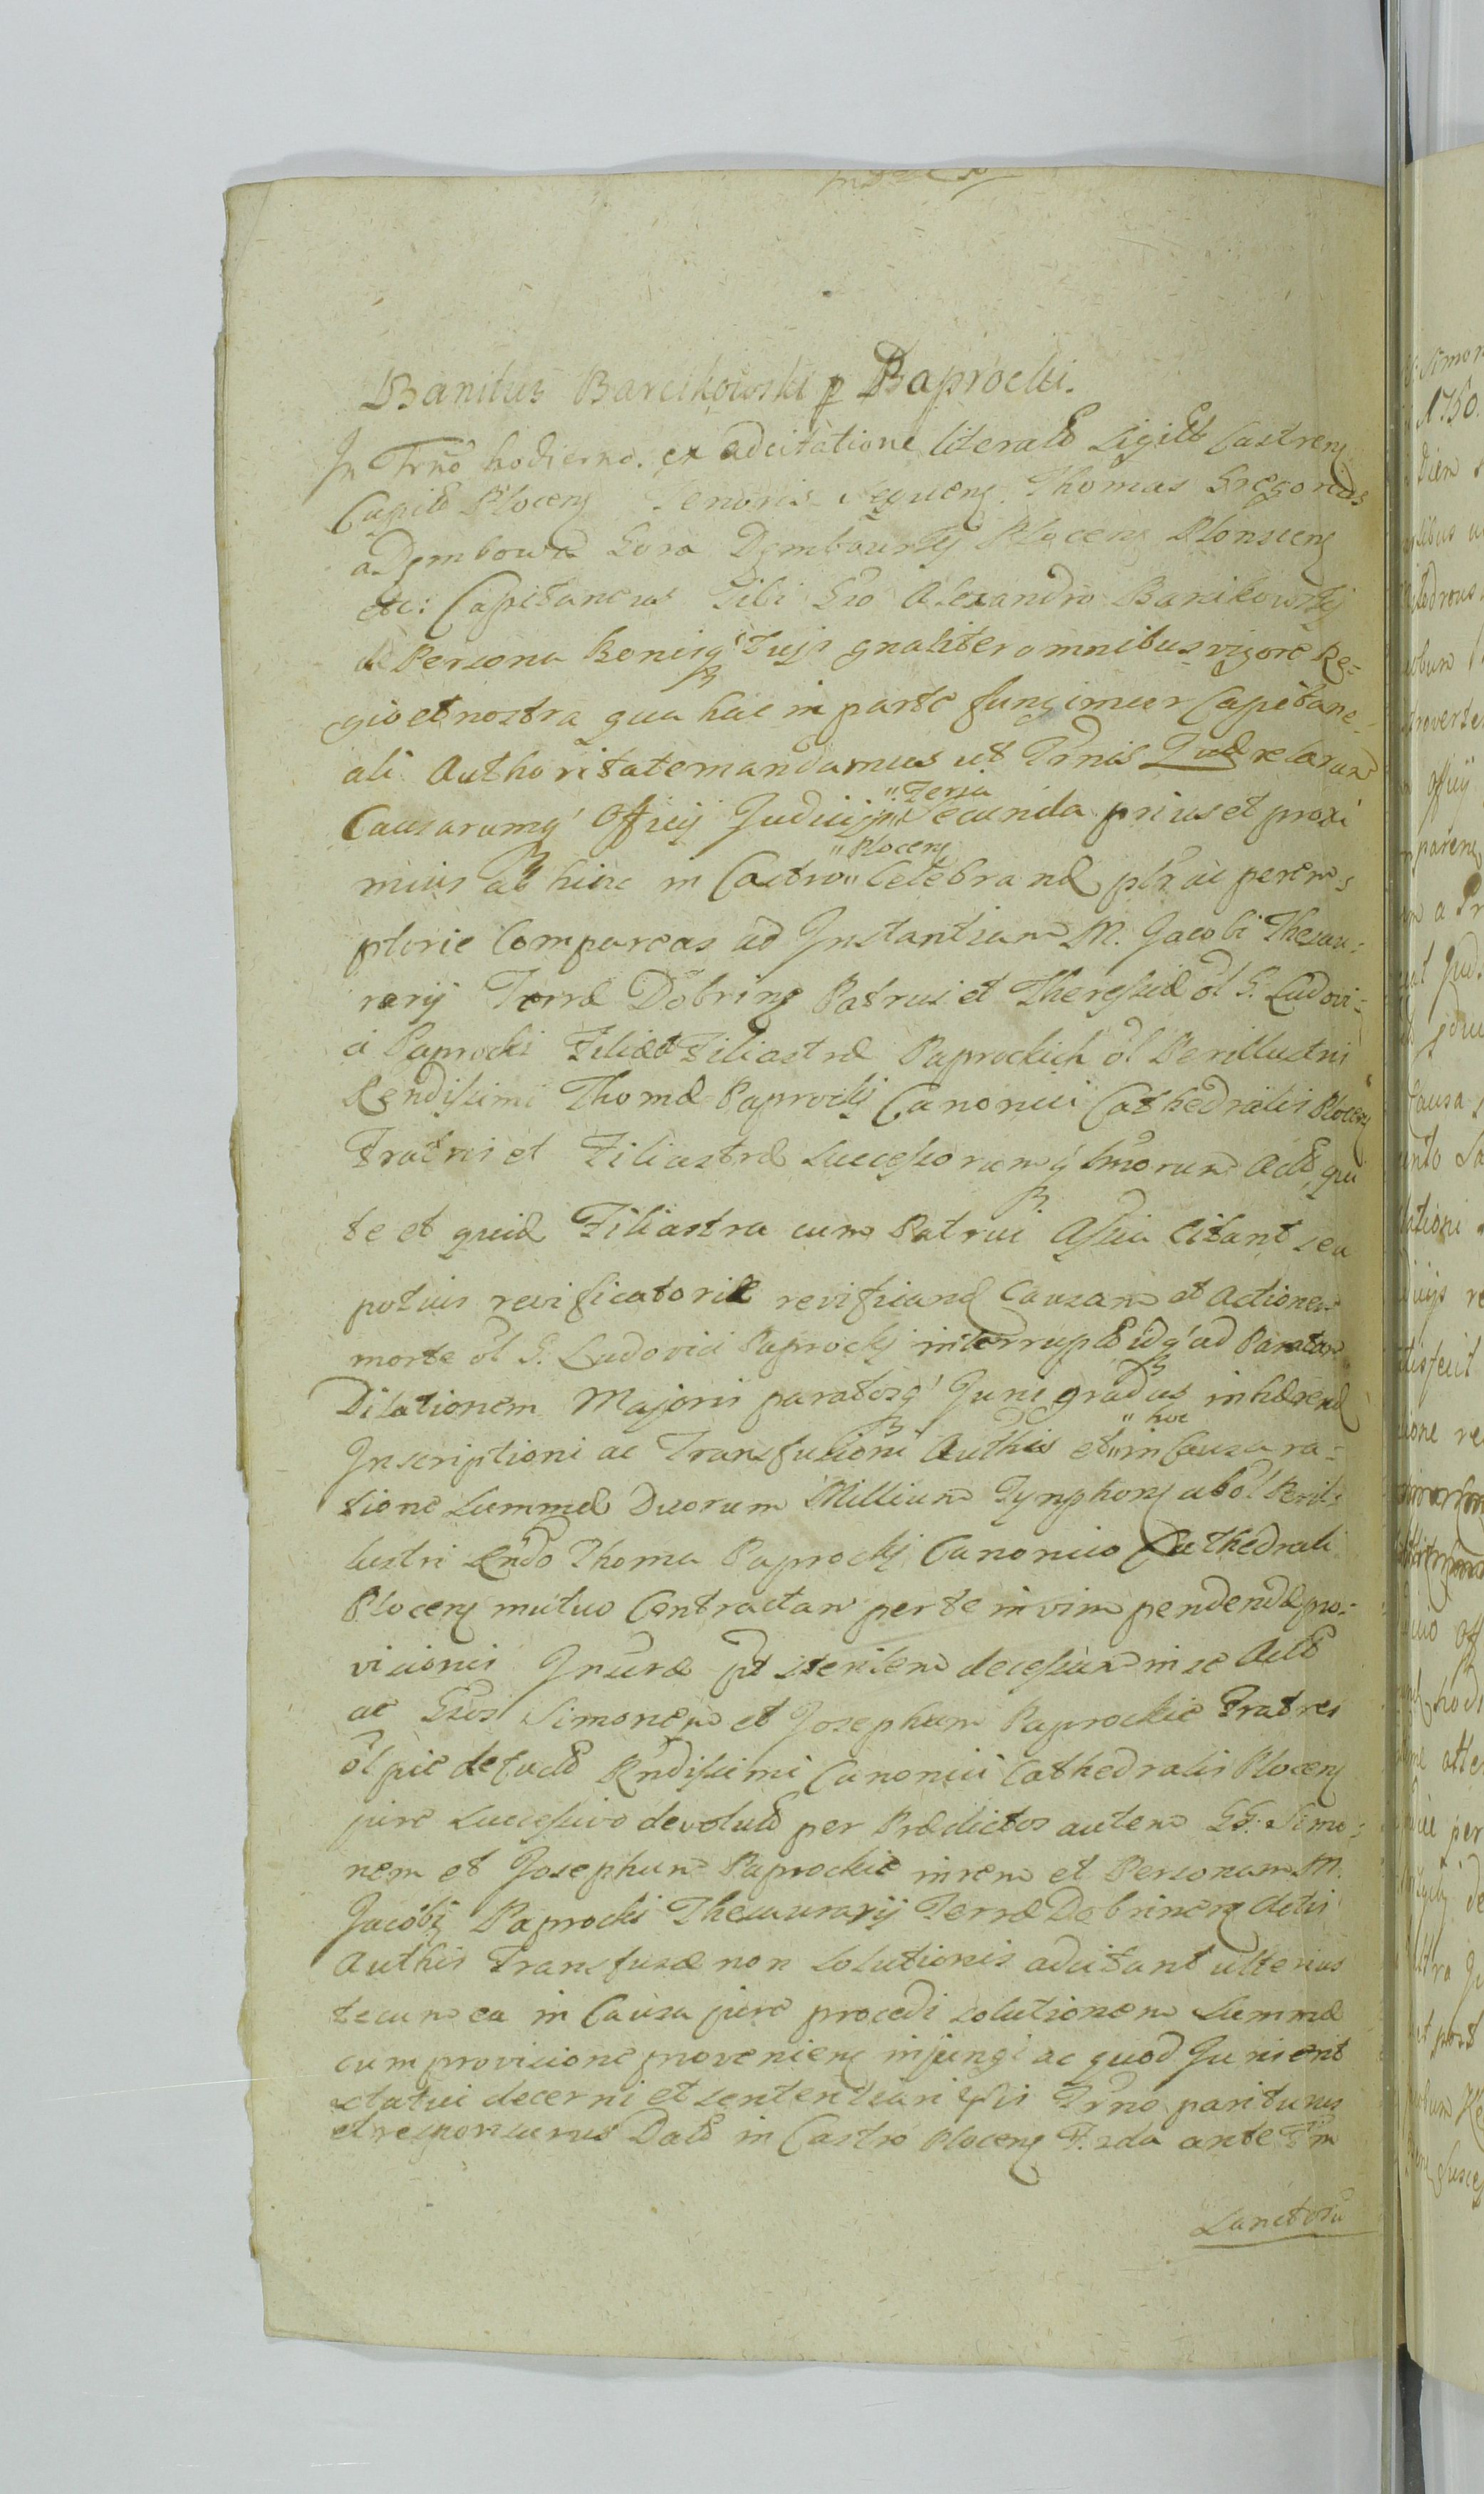 Banitus Barcikowski p Paprocki.
In Trno hodierno ex adcitatione literali Sigillo Castrens
Capitli Plocens Tenoris Sequens. Thomas Gregorius
a Dembowa Gora Dembowskj Plocens Plonscens
etc: Capitaneus Tibi Gro Alexandro Barcikowskj
de Persona Bonisq Tuis gnaliter omnibus vigore Re-
gio et nostra qua hac in parte fungimur Capitane-
ali Authoritate mandamus ut Trnis Querelarum
Causarumq Officij Judicijs " Feria secunda prius et proxi
mius ab hinc in Castro " Plocens Celebrand ptr ac perem-
ptorie Compareas ad Instantiam M. Jacobi Thesau-
rarij Terræ Dobrins Patrui et Theresiæ ol G. Ludovi-
ci Paprocki Filiæ Filiastræ Paprockich ol Perillustris
Rendissimi Thomæ Paprockj Canonici Cathedralis Plocens
Fratris et Filiastræ Successorumq bnorum Act, qui
te et quid Filiastra cum Patrui Assia Citant seu
potius revificatoriæ revificand Causam et Actionem
morte ol G. Ludovici Paprockj interrupt idq ad Paratam
Dilationem Majoris paratosq Juris gradus inhærend
Inscriptioni ac Transfusioni Authis et " hoc in Causa ra-
tione Summæ Duorum Millium Tynphons ab ol Peril-
lustri Rndo Thoma Paprockj Canonico Cathedrali
Plocens mutuo Contractam per te in vim pendendæ pro-
visionis Insuræ pt stersem decessum in se Act
ac Gsos Simonem et Josephum Paprockie Fratres
ol pie defuct Rndissimi Canonici Cathedralis Plocens
jure Successivo devolut per Prædictos autem GG. Simo-
nem et Josephum Paprockie in rem et Personam M.
Jacobi Paprocki Thesaurarij Terræ Dobrinens Actis
Authis Transfusæ non solutionis adcitant ulterius
tecum ea in Causa jure procedi solutionem Summæ
cum provisione proveniens injungi ac quod Juris erit
statui decerni et sententiari Trno pariturus
et responsurus Dat in Castro Plocens F. 2da ante Fm
Sanctoru